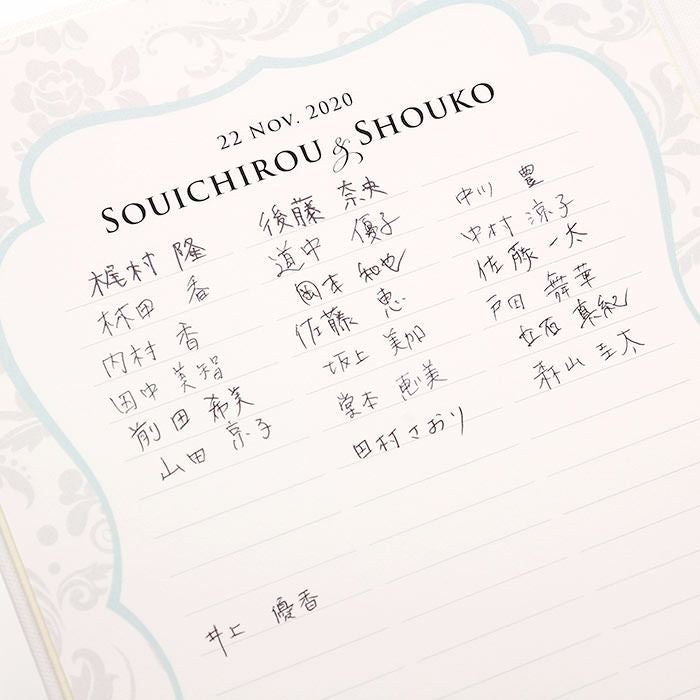 22 NOV. 2020
SOUICHIROU & SHOUKO
梶村 隆
林田 香
内村 香
田中 美智
前田 希美
山田 京子
井上 優香
後藤 奈央
道中 優子
岡本 和也
佐藤 恵
坂上 美加
堂本 恵美
田村さおり
中川 豊
中村 涼子
佐藤 一太
戸田 舞華
立石 真紀
森山 圭太